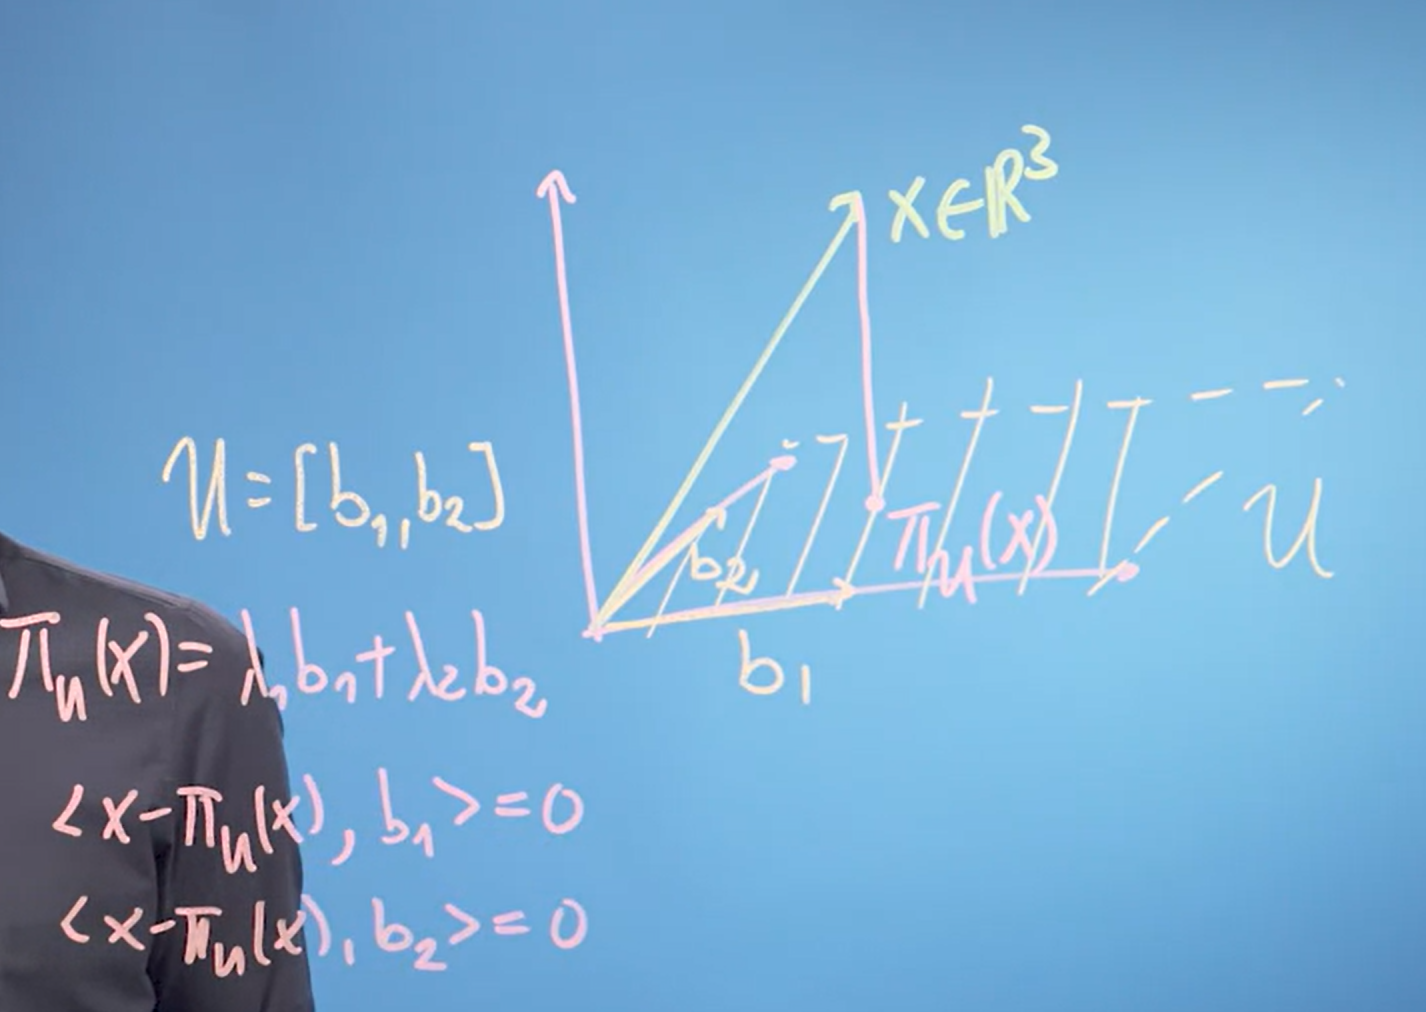 x∈ℝ³
U=[b₁,b₂]
b₂
π_U(x)
U
b₁
π_U(x)=λ₁b₁+λ₂b₂
<x-π_U(x),b₁>=0
<x-π_U(x),b₂>=0